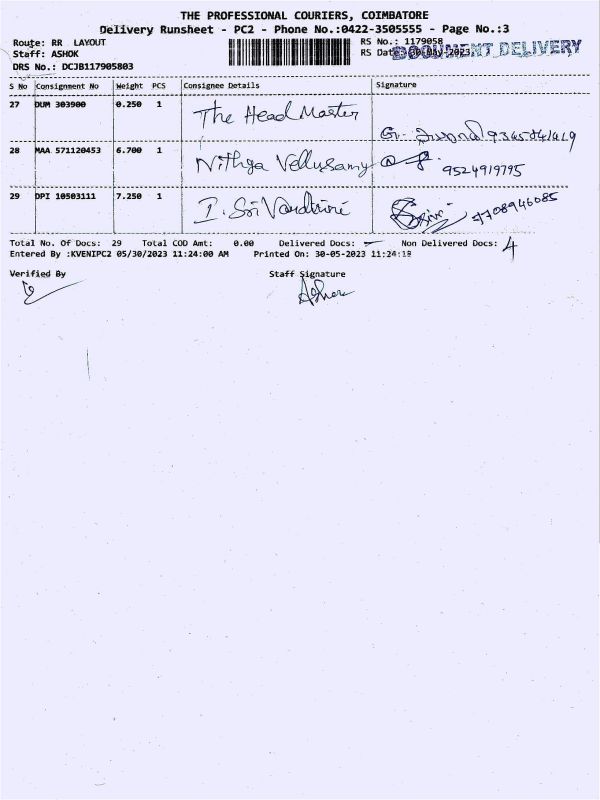 THE PROFESSIONAL COURIERS, COIMBATORE
Delivery Runsheet - PC2 - Phone No.:0422-3505555 - Page No.:3
Route: RR LAYOUT
RS No.: 1179058
Staff: ASHOK
RS Date: 30-May-2023
DOCUMENT DELIVERY
DRS No.: DCJB117905803
S No Consignment No Weight PCS Consignee Details Signature
27 DUM 303900 0.250 1 The Head Master
28 MAA 571120453 6.700 1 Nithya Vellusamy 9524919795
29 DPI 10503111 7.250 1 I. Sri Vardhini 7708946085
Total No. Of Docs: 29 Total COD Amt: 0.00 Delivered Docs: Non Delivered Docs: 4
Entered By :KVENIPC2 05/30/2023 11:24:00 AM Printed On: 30-05-2023 11:24:18
Verified By Staff Signature
Ashok